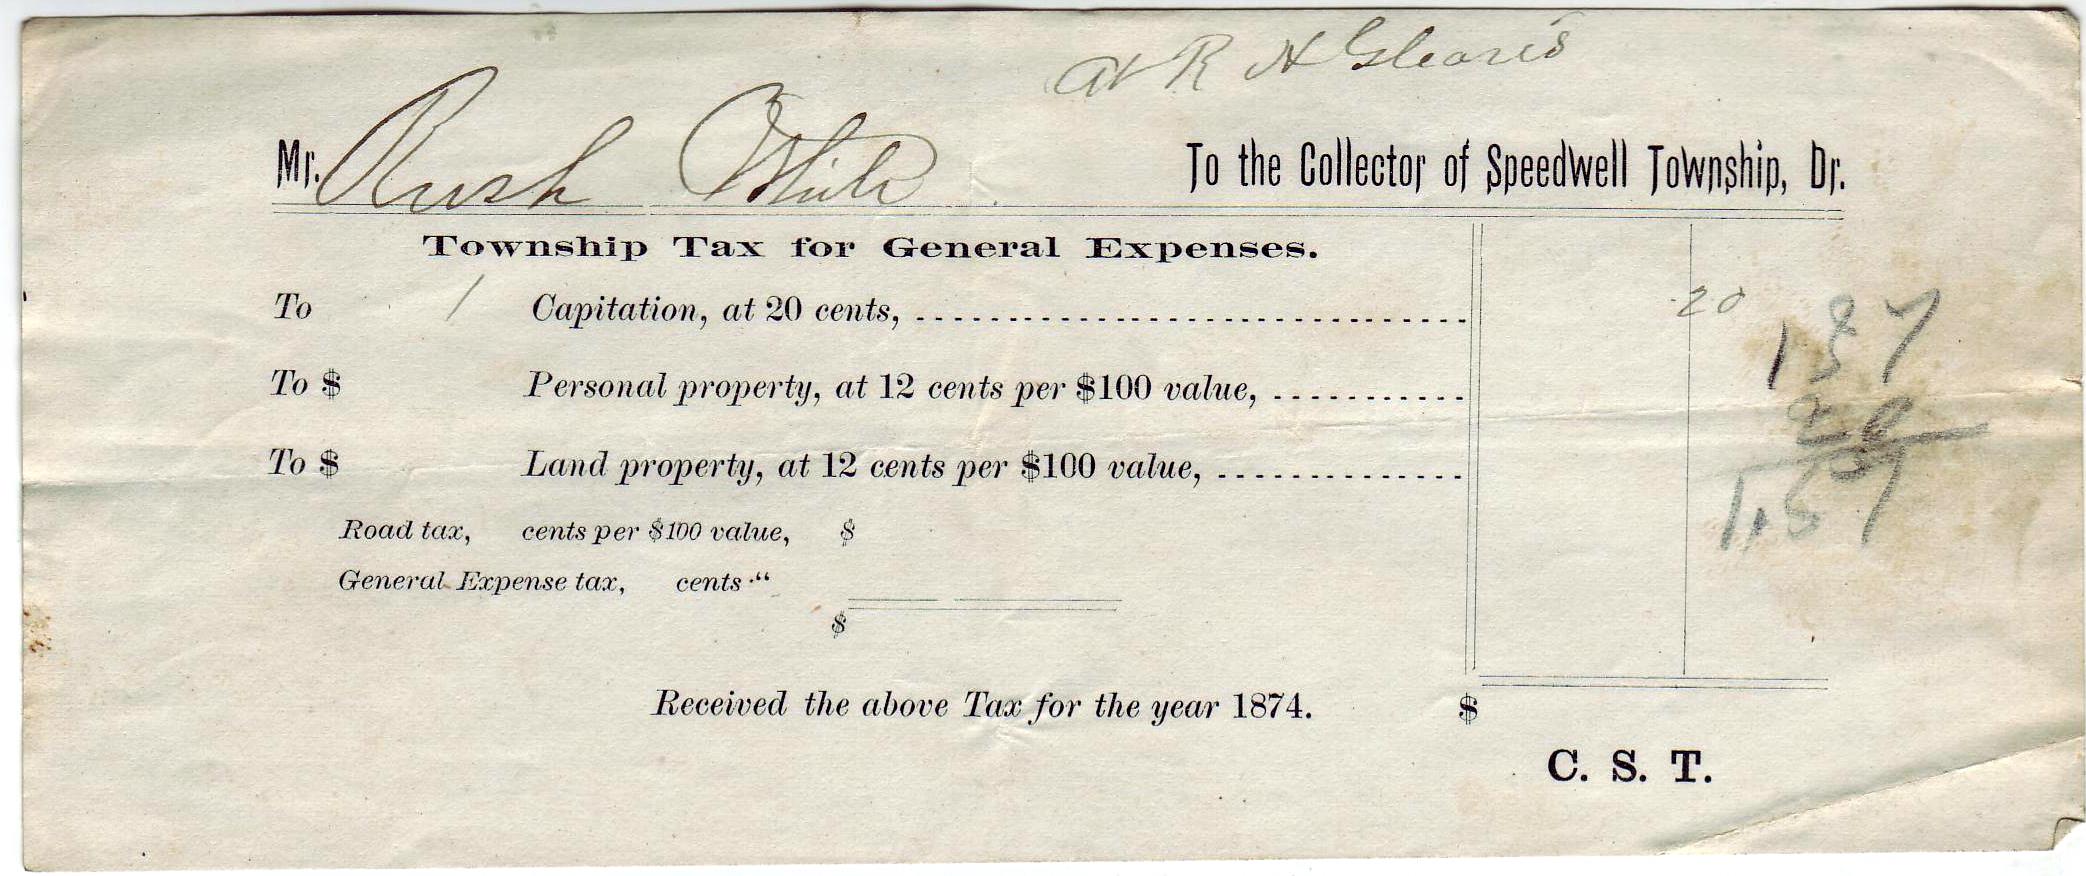 at R H Gleave's
Mr. Rush White To the Collector of Speedwell Township, Dr.
Township Tax for General Expenses.
To 1 Capitation, at 20 cents, 20
187
To $ Personal property, at 12 cents per $100 value,
20
To $ Land property, at 12 cents per $100 value,
Road tax, cents per $100 value, $
General Expense tax, cents "
$
Received the above Tax for the year 1874. $
C. S. T.